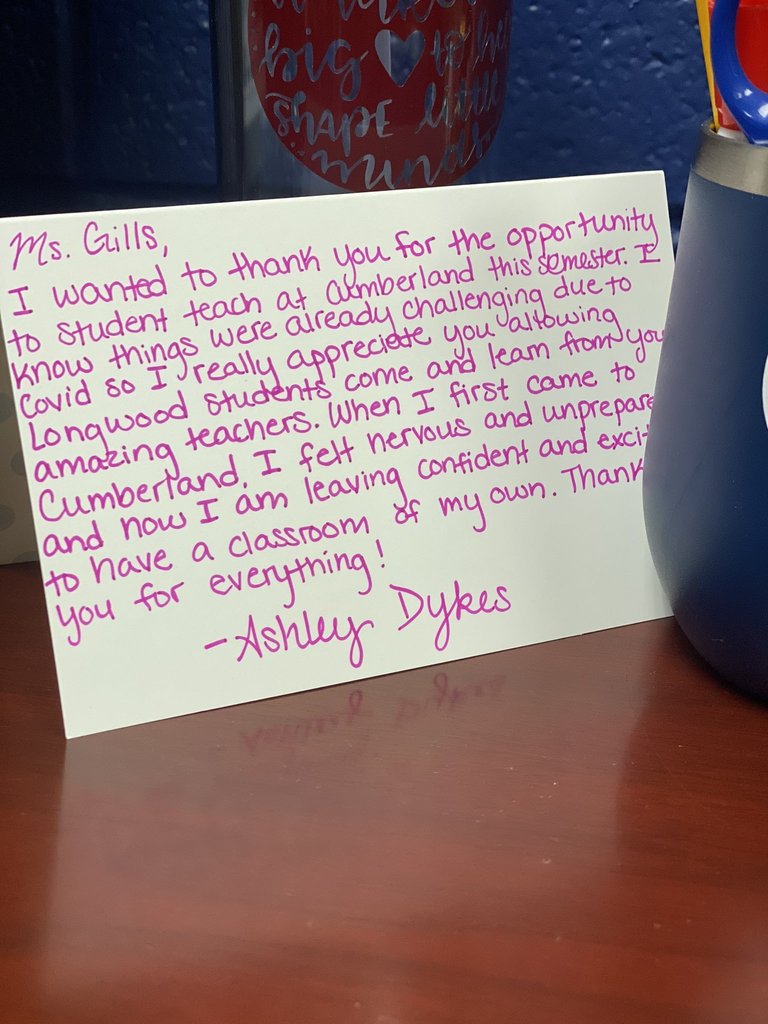 big to he
shape little
minds
Ms. Gills,
I wanted to thank you for the opportunity
to student teach at Cumberland this semester. I
know things were already challenging due to
Covid so I really appreciate you allowing
Longwood students come and learn from you
amazing teachers. When I first came to
Cumberland, I felt nervous and unprepare
and now I am leaving confident and exci
to have a classroom of my own. Thank
you for everything!
-Ashley Dykes